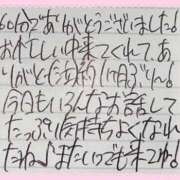 60分でありがとうございました!
お忙しい中来てくれて、あ
りがとう
今日もいろんなお話して
たっぷり気持ちよくなれ
たね♪またいつでも来てね!